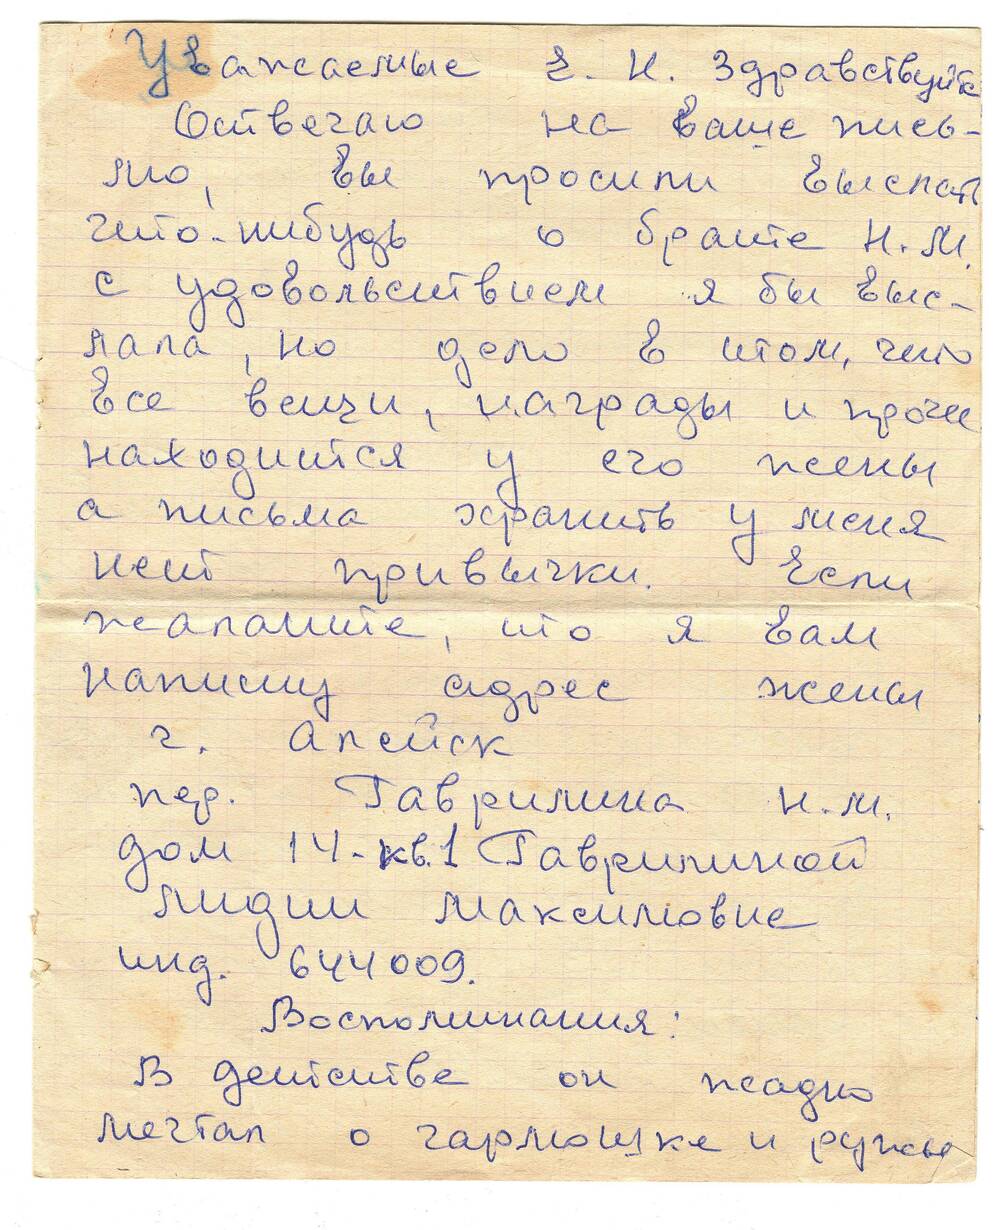 Уважаемые Е. Н. Здравствуйте
Отвечаю на ваше пись-
мо, вы просили выслать
что-нибудь о брате Н.М.
с удовольствием я бы выс-
лала, но дело в том, что
все вещи, награды и проче
находится у его жены
а письма хранить у меня
нет привычки. Если
желаете, то я вам
напишу адрес жены
г. Апейск
пер. Гаврилина Н.М.
дом 14-кв.1 Гаврилиной
Лидии Максимовне
инд. 644009.
Воспоминания:
В детстве он жадно
мечтал о гармошке и ружье